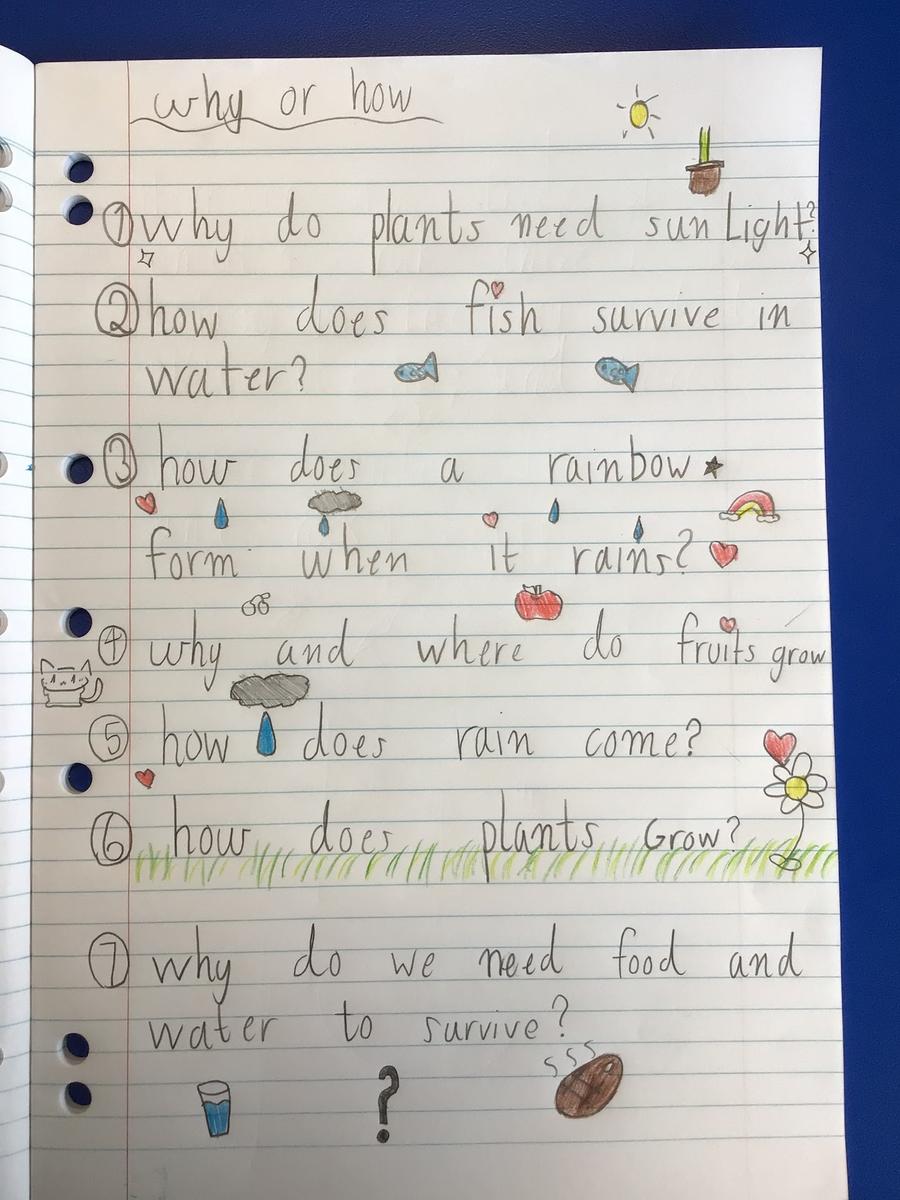 why or how
① why do plants need sunLight?
② how does fish survive in
water?
③ how does a rainbow
form when it rains?
④ why and where do fruits grow
⑤ how does rain come?
⑥ how does plants Grow?
⑦ why do we need food and
water to survive?
sss
?